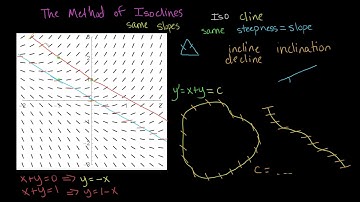 The Method of Isoclines
same slopes
Iso cline
same steepness = slope
incline inclination
decline
y' = x+y = C
C = ---
x+y=0 ⟹ y=-x
x+y=1 ⟹ y=1-x